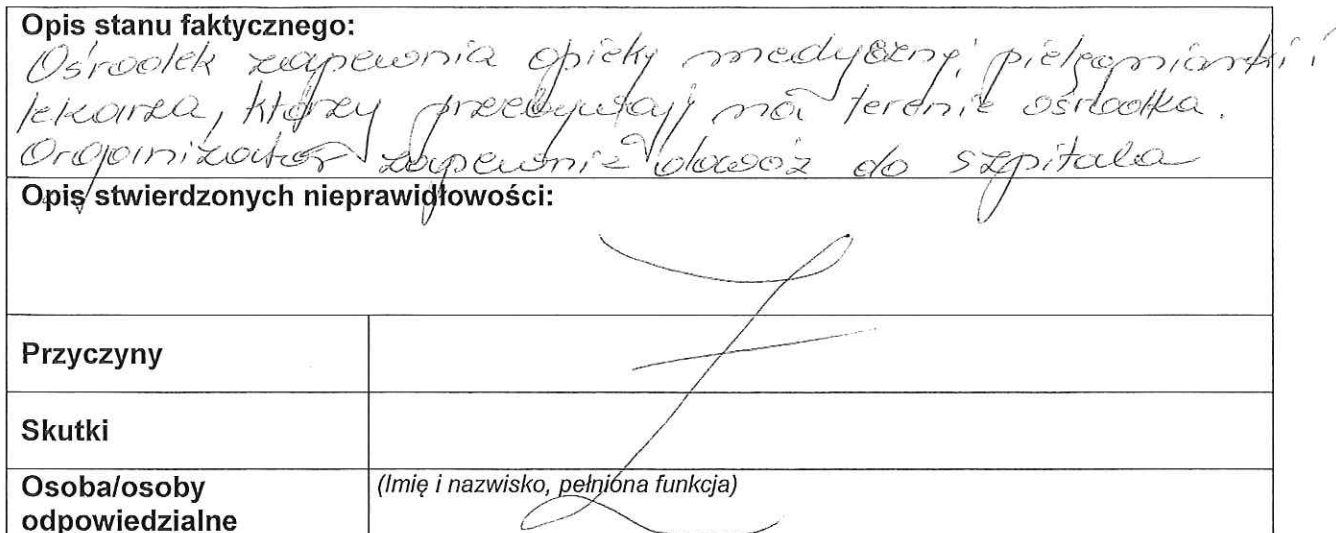 Opis stanu faktycznego:
Ośrodek zapewnia opiekę medyczną, pielęgniarki i
lekarza, którzy przebywają na terenie ośrodka.
Organizator zapewnia dowóz do szpitala
Opis stwierdzonych nieprawidłowości:
Przyczyny
Skutki
Osoba/osoby
odpowiedzialne
(Imię i nazwisko, pełniona funkcja)